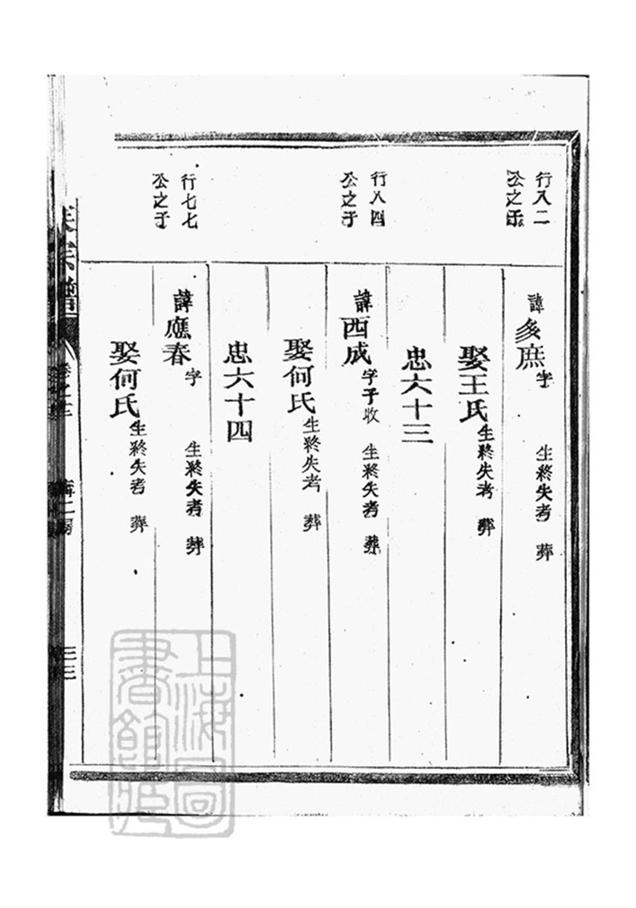 行八二
公之子
諱多庶字 生終失考 葬
娶王氏生終失考 葬
忠六十三
行八四
公之子
諱西成字子收 生終失考 葬
娶何氏生終失考 葬
忠六十四
行七七
公之子
諱應春字 生終失考 葬
娶何氏生終失考 葬
宗譜
卷之
二房
三三
上海圖
書館藏